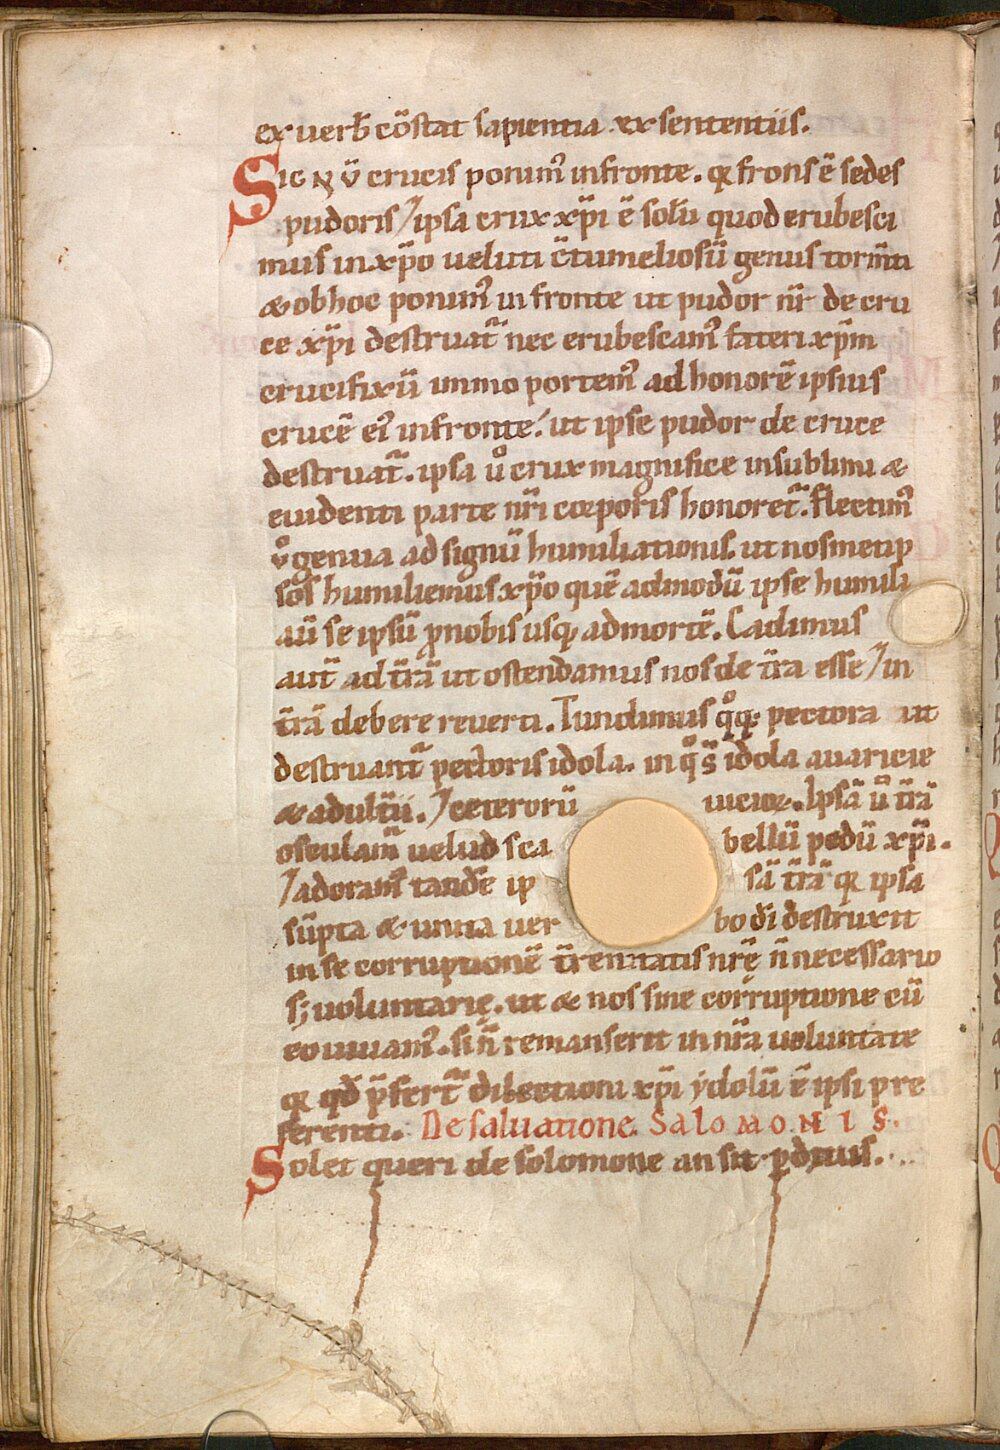 ex uerb̄ cōstat sapientia xx sententiis.
SIGNV̄ crucis ponim᷒ in fronte. q̄ frons ē sedes
pudoris / ipsa crux xp̄i ē solū quod erubesci
mus in xp̄o ueluti c̄tumeliosū genus torm̄ti
& ob hoc ponim᷒ in fronte ut pudor nr̄ de cru
ce xp̄i destruat̄ nec erubescam᷒ fateri xp̄m
crucifixū immo portem᷒ ad honorē ipsius
crucē ei᷒ in fronte. ut ipse pudor de cruce
destruat̄. ipsa u͛o crux magnifice in sublimi &
euidenti parte nr̄i corporis honoret̄. flectim᷒
u͛o genua ad signū humiliationis. ut nosmetip
sos humiliemus xp̄o quē admodū ipse humili
auit̄ se ipsū ꝓ nobis usq; ad mortē. Cadimus
aut̄ ad t̄rā ut ostendamus nos de t̄ra esse / in
t̄rā debere reuerti. Tundimus qͦq; pectora ut
destruant̄ pectoris idola. in qͦ s̄ idola auaricie
& adult̄ii. / ceterorū uicior̄. Ipsā u͛o t̄rā
osculam᷒ uelud sca bellū pedū xp̄i.
/ adoram᷒ tandē ip sā t̄rā q̄ ipsa
sūpta & unita uer bo dī destruxit
in se corruptionē t̄renitatis nr̄ę n̄ necessario
s; uoluntarie. ut & nos sine corruptione cū
eo uiuam᷒. si n̄ remanserit in nr̄a uoluntate
q̄ qd̄ p̄fert̄ dilectioni xp̄i ydolū ē ipsi pre
ferenti. De saluatione SaloMONIS.
Solet queri de solomone an sit ꝑditus.